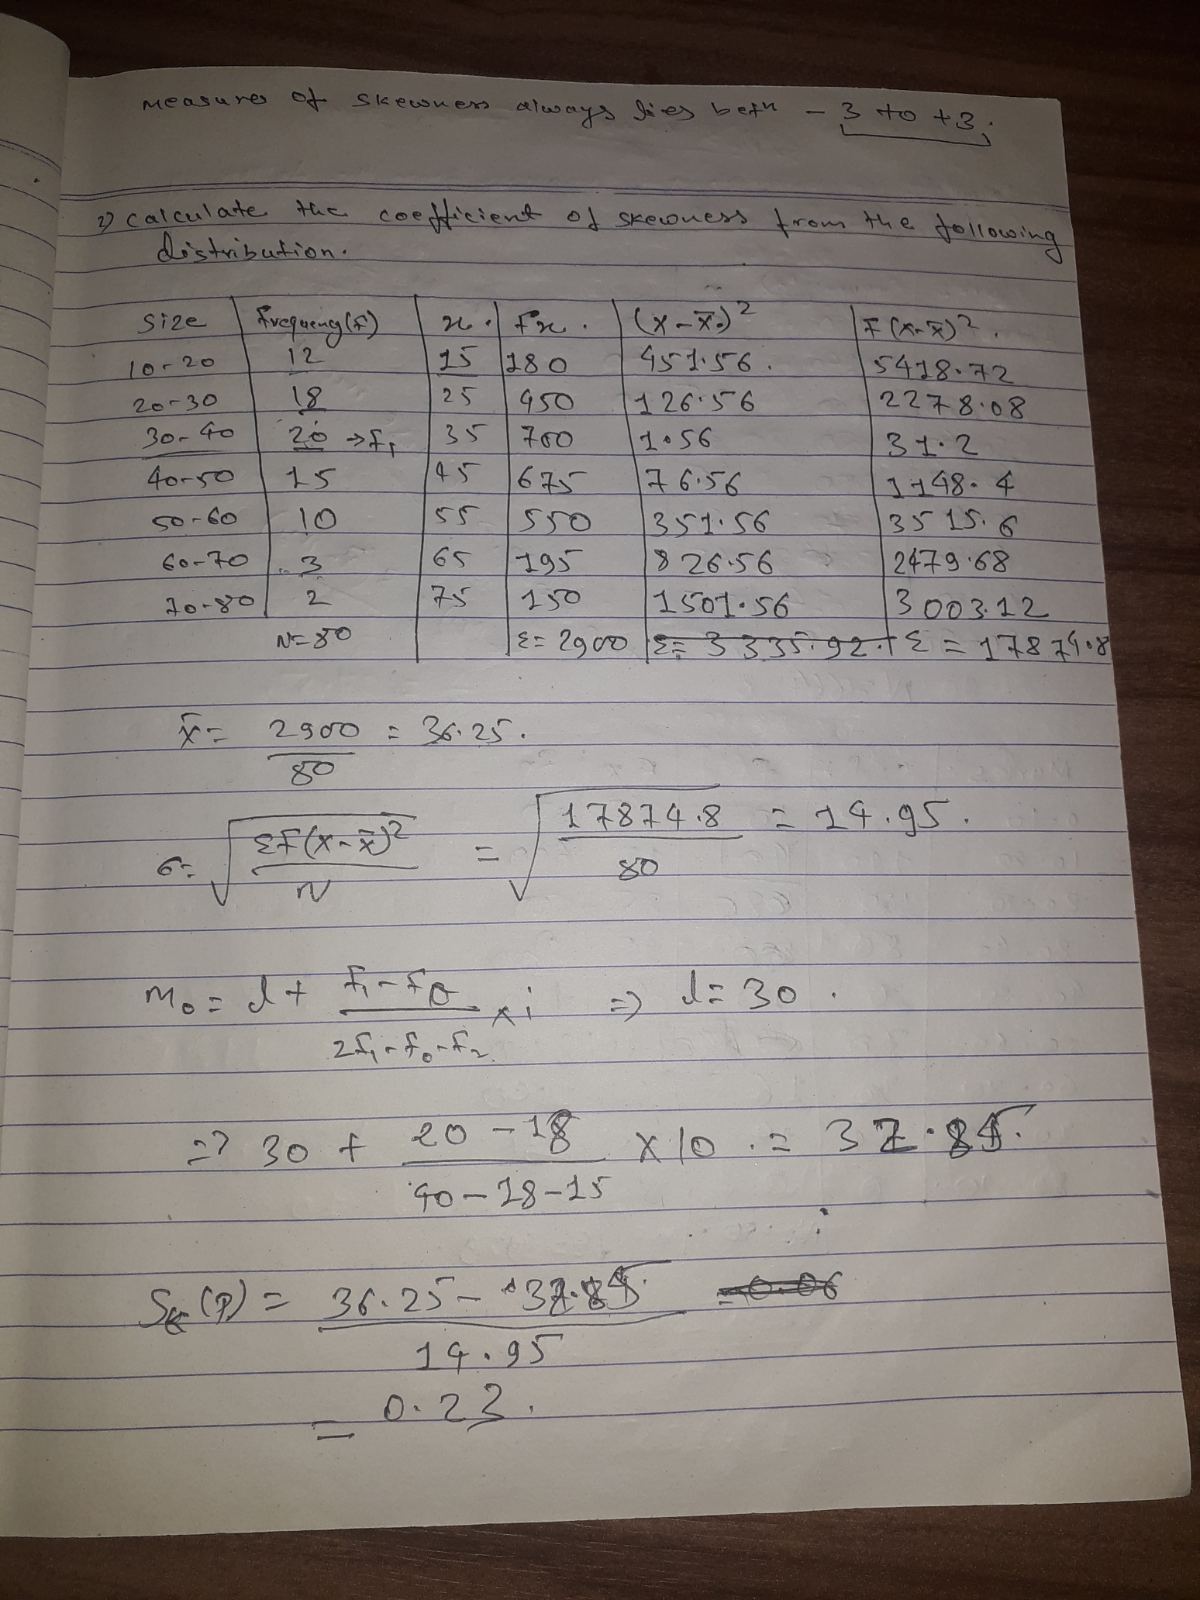 Measures of skewness always lies betn - 3 to +3.
2) Calculate the coefficient of skewness from the following
distribution.
Size Frequency(F) x. Fx. (x-x̄)² F(x-x̄)².
10-20 12 15 180 451.56. 5418.72
20-30 18 25 450 126.56 2278.08
30-40 20 →F₁ 35 700 1.56 31.2
40-50 15 45 675 76.56 1148.4
50-60 10 55 550 351.56 3515.6
60-70 3 65 195 826.56 2479.68
70-80 2 75 150 1501.56 3003.12
N=80 Σ=2900 Σ= 3335.92. Σ = 17874.8
x̄ = 2900/80 = 36.25.
σ= √ΣF(x-x̄)²/N = √17874.8/80 = 14.95.
M₀ = l + F₁-F₀/2F₁-F₀-F₂ × i ⇒ l = 30.
⇒ 30 + 20-18/40-18-15 × 10 . =
Sk (P) = 36.25 - /14.95 = 0.06
= 0.23.